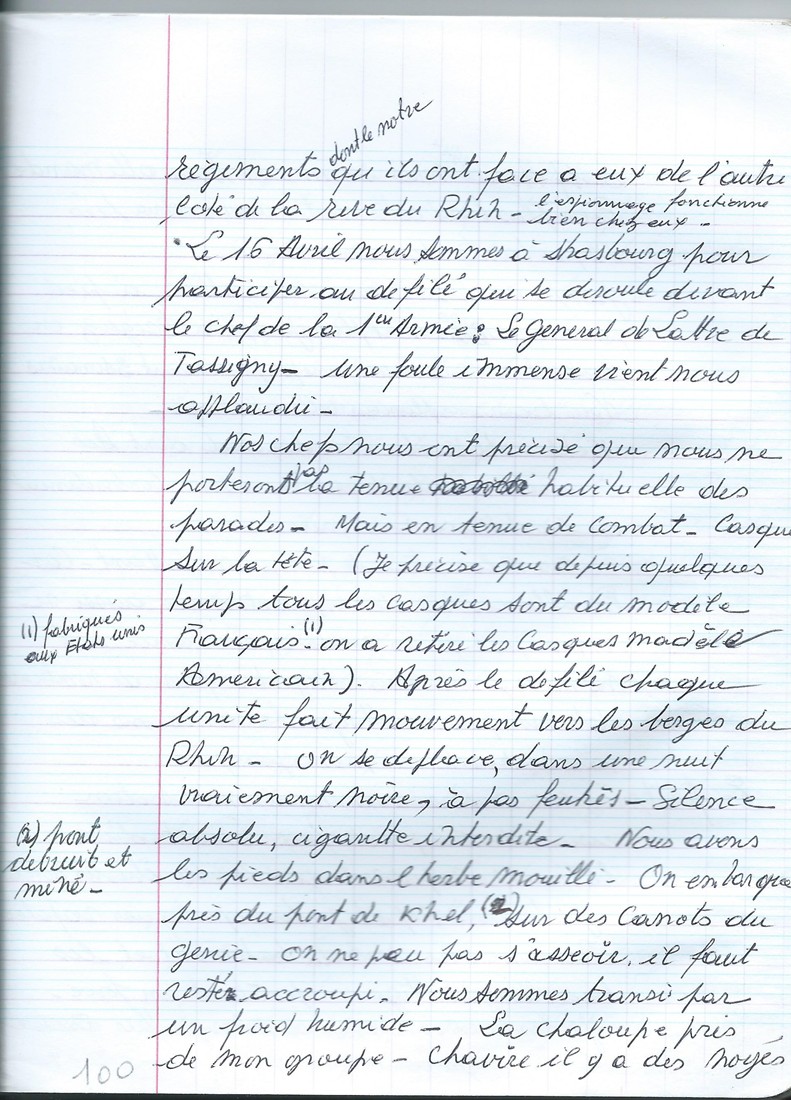 dont le notre
régiments qu'ils ont face a eux de l'autre
coté de la rive du Rhin - l'espionnage fonctionne
bien chez eux -
Le 16 Avril nous sommes à Strasbourg pour
participer au defilé qui se deroule devant
le chef de la 1ere Armée: Le General de Lattre de
Tassigny - une foule immense vient nous
applaudir -
Nos chefs nous ont précisé que nous ne
porterons pas la tenue habituelle des
parades - Mais en tenue de combat - Casque
sur la tête - (Je précise que depuis quelques
temps tous les casques sont du modèle
(1) fabriqués
aux Etats unis
Français (1) on a retiré les Casques modèle
Americain). Après le defilé chaque
unité fait mouvement vers les berges du
Rhin - On se deplace, dans une nuit
vraiement noire, à pas feutrés - Silence
(2) pont
detruit et
miné -
absolu, cigarette interdite - Nous avons
les pieds dans l'herbe mouillé - On embarque
près du pont de Khel, (2) sur des Canots du
genie - on ne peu pas s'asseoir, il faut
rester accroupi - Nous sommes transi par
un froid humide - La chaloupe près
de mon groupe - Chavire il y a des noyés
100